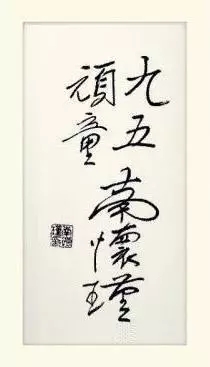 九五
頑童
南懷瑾